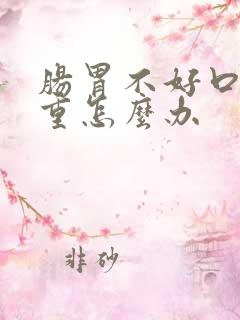 腸胃不好口
重怎麼办
非砂